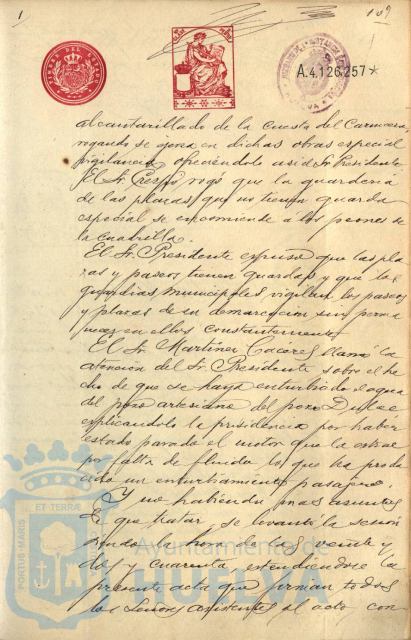 1
109
TIMBRE DEL ESTADO
A.4.126.257*
alcantarillado de la Cuesta del Carmen
rogando se ponga en dichas obras especial
vigilancia ofreciéndolo así el Sr. Presidente
El Sr. Crespo rogó que la guarderia
de las plazas que no tienen guarda
especial se encomiende a los peones de
la cuadrilla.
El Sr. Presidente expuso que las pla
zas y paseos tienen guardas y que los
guardias municipales vigilan los paseos
y plazas de su demarcacion sin perma
necer en ellos constantemente
El Sr. Martinez Cáceres llamó la
atención del Sr. Presidente sobre el he
cho de que se haya enturbiado el agua
del pozo artesiano del pozo Dulce
explicándolo la presidencia por haber
estado parado el motor que la extrae
por falta de fluido lo que ha produ
cido un enturbiamiento pasajero.
Y no habiendo mas asuntos
de que tratar se levantó la sesión
siendo la hora de las veinte y
dos y cuarenta extendiéndose la
presente acta que firman todos
los Señores asistentes al acto con-
PORTUS MARIS
ET TERRÆ
Ayuntamiento de
HUELVA